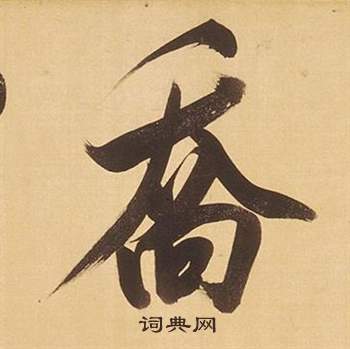 喬
词典网